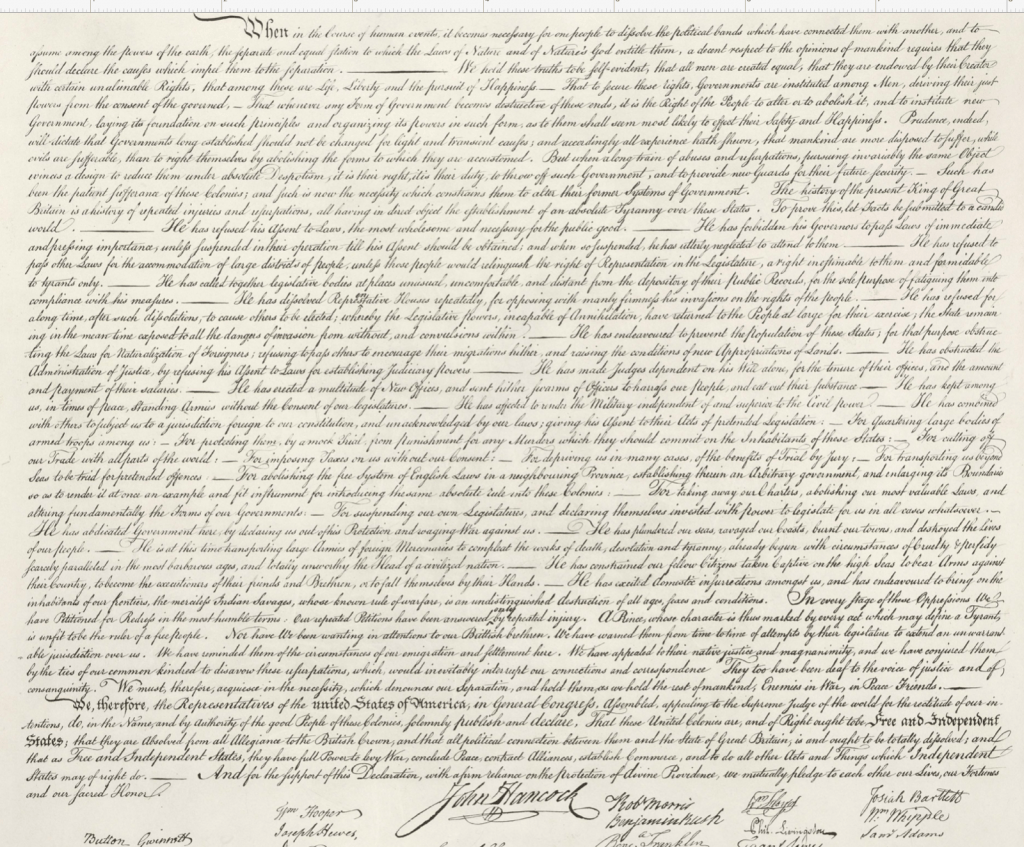 When in the Course of human events, it becomes necessary for one people to dissolve the political bands which have connected them with another, and to
assume among the powers of the earth, the separate and equal station to which the Laws of Nature and of Nature's God entitle them, a decent respect to the opinions of mankind requires that they
should declare the causes which impel them to the separation. ——— We hold these truths to be self-evident, that all men are created equal, that they are endowed by their Creator
with certain unalienable Rights, that among these are Life, Liberty and the pursuit of Happiness.— That to secure these rights, Governments are instituted among Men, deriving their just
powers from the consent of the governed, — That whenever any Form of Government becomes destructive of these ends, it is the Right of the People to alter or to abolish it, and to institute new
Government, laying its foundation on such principles and organizing its powers in such form, as to them shall seem most likely to effect their Safety and Happiness. Prudence, indeed,
will dictate that Governments long established should not be changed for light and transient causes; and accordingly all experience hath shewn, that mankind are more disposed to suffer, while
evils are sufferable, than to right themselves by abolishing the forms to which they are accustomed. But when a long train of abuses and usurpations, pursuing invariably the same Object
evinces a design to reduce them under absolute Despotism, it is their right, it is their duty, to throw off such Government, and to provide new Guards for their future security.— Such has
been the patient sufferance of these Colonies; and such is now the necessity which constrains them to alter their former Systems of Government. The history of the present King of Great
Britain is a history of repeated injuries and usurpations, all having in direct object the establishment of an absolute Tyranny over these States. To prove this, let Facts be submitted to a candid
world. ——— He has refused his Assent to Laws, the most wholesome and necessary for the public good. ——— He has forbidden his Governors to pass Laws of immediate
and pressing importance, unless suspended in their operation till his Assent should be obtained; and when so suspended, he has utterly neglected to attend to them. ——— He has refused to
pass other Laws for the accommodation of large districts of people, unless those people would relinquish the right of Representation in the Legislature, a right inestimable to them and formidable
to tyrants only. ——— He has called together legislative bodies at places unusual, uncomfortable, and distant from the depository of their Public Records, for the sole purpose of fatiguing them into
compliance with his measures. ——— He has dissolved Representative Houses repeatedly, for opposing with manly firmness his invasions on the rights of the people. ——— He has refused for
a long time, after such dissolutions, to cause others to be elected; whereby the Legislative powers, incapable of Annihilation, have returned to the People at large for their exercise; the State remain
ing in the mean time exposed to all the dangers of invasion from without, and convulsions within. ——— He has endeavoured to prevent the population of these States; for that purpose obstruc
ting the Laws for Naturalization of Foreigners; refusing to pass others to encourage their migrations hither, and raising the conditions of new Appropriations of Lands. ——— He has obstructed the
Administration of Justice, by refusing his Assent to Laws for establishing Judiciary powers. ——— He has made Judges dependent on his Will alone, for the tenure of their offices, and the amount
and payment of their salaries. ——— He has erected a multitude of New Offices, and sent hither swarms of Officers to harrass our people, and eat out their substance. ——— He has kept among
us, in times of peace, Standing Armies without the Consent of our legislatures. ——— He has affected to render the Military independent of and superior to the Civil power. ——— He has combined
with others to subject us to a jurisdiction foreign to our constitution, and unacknowledged by our laws; giving his Assent to their Acts of pretended Legislation: — For Quartering large bodies of
armed troops among us: — For protecting them, by a mock Trial, from punishment for any Murders which they should commit on the Inhabitants of these States: — For cutting off
our Trade with all parts of the world: — For imposing Taxes on us without our Consent: — For depriving us in many cases, of the benefits of Trial by Jury: — For transporting us beyond
Seas to be tried for pretended offences — For abolishing the free System of English Laws in a neighbouring Province, establishing therein an Arbitrary government, and enlarging its Boundaries
so as to render it at once an example and fit instrument for introducing the same absolute rule into these Colonies: — For taking away our Charters, abolishing our most valuable Laws, and
altering fundamentally the Forms of our Governments: — For suspending our own Legislatures, and declaring themselves invested with power to legislate for us in all cases whatsoever. —
He has abdicated Government here, by declaring us out of his Protection and waging War against us. — He has plundered our seas, ravaged our Coasts, burnt our towns, and destroyed the lives
of our people. — He is at this time transporting large Armies of foreign Mercenaries to compleat the works of death, desolation and tyranny, already begun with circumstances of Cruelty & perfidy
scarcely paralleled in the most barbarous ages, and totally unworthy the Head of a civilized nation. — He has constrained our fellow Citizens taken Captive on the high Seas to bear Arms against
their Country, to become the executioners of their friends and Brethren, or to fall themselves by their Hands. — He has excited domestic insurrections amongst us, and has endeavoured to bring on the
inhabitants of our frontiers, the merciless Indian Savages, whose known rule of warfare, is an undistinguished destruction of all ages, sexes and conditions. In every stage of these Oppressions We
have Petitioned for Redress in the most humble terms: Our repeated Petitions have been answered only by repeated injury. A Prince, whose character is thus marked by every act which may define a Tyrant,
is unfit to be the ruler of a free people. Nor have We been wanting in attentions to our Brittish brethren. We have warned them from time to time of attempts by their legislature to extend an unwarrant
able jurisdiction over us. We have reminded them of the circumstances of our emigration and settlement here. We have appealed to their native justice and magnanimity, and we have conjured them
by the ties of our common kindred to disavow these usurpations, which, would inevitably interrupt our connections and correspondence They too have been deaf to the voice of justice and of
consanguinity. We must, therefore, acquiesce in the necessity, which denounces our Separation, and hold them, as we hold the rest of mankind, Enemies in War, in Peace Friends. ———
We, therefore, the Representatives of the united States of America, in General Congress, Assembled, appealing to the Supreme Judge of the world for the rectitude of our in-
tentions, do, in the Name, and by Authority of the good People of these Colonies, solemnly publish and declare, That these United Colonies are, and of Right ought to be Free and Independent
States; that they are Absolved from all Allegiance to the British Crown, and that all political connection between them and the State of Great Britain, is and ought to be totally dissolved; and
that as Free and Independent States, they have full Power to levy War, conclude Peace, contract Alliances, establish Commerce, and to do all other Acts and Things which Independent
States may of right do. ——— And for the support of this Declaration, with a firm reliance on the protection of divine Providence, we mutually pledge to each other our Lives, our Fortunes
and our sacred Honor.
John Hancock
Button Gwinnett
Wm Hooper
Joseph Hewes,
Robt Morris
Benjamin Rush
Benj. Franklin
Wm Floyd
Phil. Livingston
Josiah Bartlett
Wm Whipple
Saml Adams